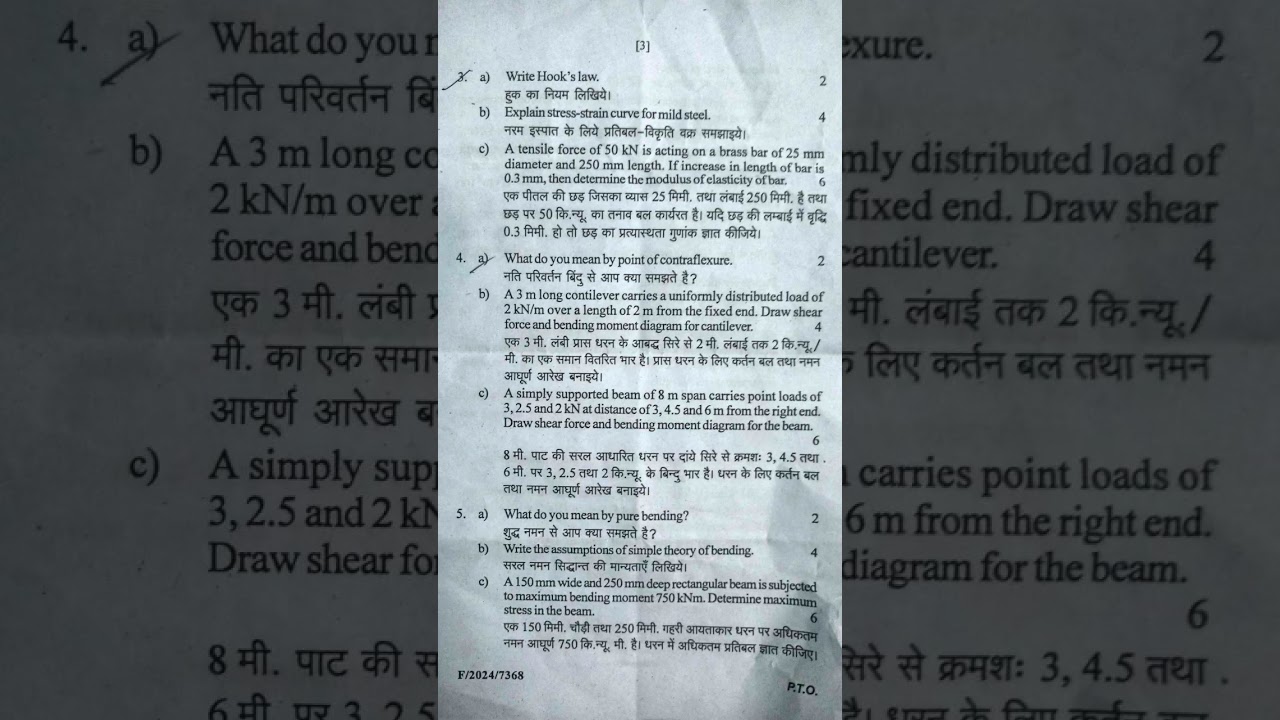 [3]
3. a) Write Hook's law. 2
हुक का नियम लिखिये।
b) Explain stress-strain curve for mild steel. 4
नरम इस्पात के लिये प्रतिबल-विकृति वक्र समझाइये।
c) A tensile force of 50 kN is acting on a brass bar of 25 mm
diameter and 250 mm length. If increase in length of bar is
0.3 mm, then determine the modulus of elasticity of bar. 6
एक पीतल की छड़ जिसका व्यास 25 मिमी. तथा लंबाई 250 मिमी. है तथा
छड़ पर 50 कि.न्यू. का तनाव बल कार्यरत है। यदि छड़ की लम्बाई में वृद्धि
0.3 मिमी. हो तो छड़ का प्रत्यास्थता गुणांक ज्ञात कीजिये।
4. a) What do you mean by point of contraflexure. 2
नति परिवर्तन बिंदु से आप क्या समझते है?
b) A 3 m long contilever carries a uniformly distributed load of
2 kN/m over a length of 2 m from the fixed end. Draw shear
force and bending moment diagram for cantilever. 4
एक 3 मी. लंबी प्रास धरन के आबद्ध सिरे से 2 मी. लंबाई तक 2 कि.न्यू./
मी. का एक समान वितरित भार है। प्रास धरन के लिए कर्तन बल तथा नमन
आघूर्ण आरेख बनाइये।
c) A simply supported beam of 8 m span carries point loads of
3, 2.5 and 2 kN at distance of 3, 4.5 and 6 m from the right end.
Draw shear force and bending moment diagram for the beam.
6
8 मी. पाट की सरल आधारित धरन पर दांये सिरे से क्रमशः 3, 4.5 तथा .
6 मी. पर 3, 2.5 तथा 2 कि.न्यू. के बिन्दु भार है। धरन के लिए कर्तन बल
तथा नमन आघूर्ण आरेख बनाइये।
5. a) What do you mean by pure bending? 2
शुद्ध नमन से आप क्या समझते है?
b) Write the assumptions of simple theory of bending. 4
सरल नमन सिद्धान्त की मान्यताएँ लिखिये।
c) A 150 mm wide and 250 mm deep rectangular beam is subjected
to maximum bending moment 750 kNm. Determine maximum
stress in the beam. 6
एक 150 मिमी. चौड़ी तथा 250 मिमी. गहरी आयताकार धरन पर अधिकतम
नमन आघूर्ण 750 कि.न्यू. मी. है। धरन में अधिकतम प्रतिबल ज्ञात कीजिए।
F/2024/7368 P.T.O.